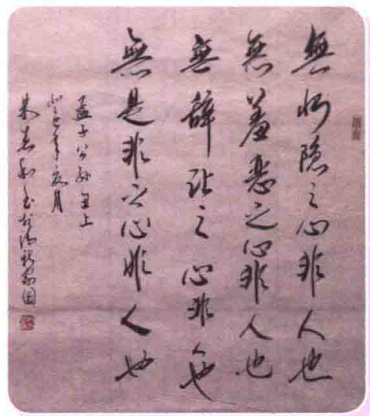 無惻隱之心非人也
無羞惡之心非人也
無辭讓之心非人也
無是非之心非人也
孟子公孫丑上
癸巳年夏月
朱志和書於